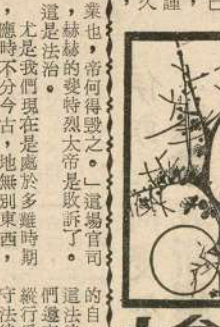 已
謹，
久
業也，帝何得毀之。」這場官司
，赫赫的斐特烈大帝是敗訴了。
這是法治。
尤是我們現在是處於多難時期
，應時不分今古，地無別東西，
的自
這法
們遵
縱行
守法